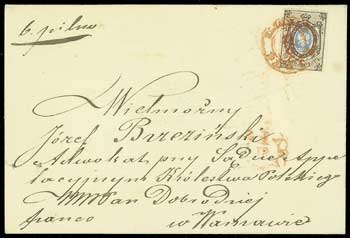 b. pilno
Wielmożny
Józef Brzeziński
Adwokat przy Sądzie Appe
lacyjnym Królestwa Polskiego
Wny Pan Dobrodziej
franco
w Warszawie